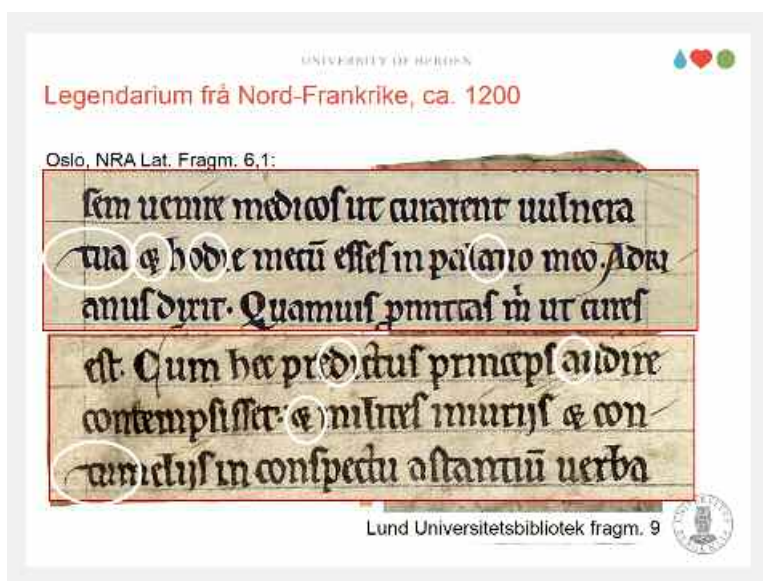 UNIVERSITY OF BERGEN
Legendarium frå Nord-Frankrike, ca. 1200
Oslo, NRA Lat. Fragm. 6,1:
ſem uenire medicoſ ut curarent uulnera
tua & hodie mecū eſſeſ in palatio meo. Adri
anuſ dixit. Quamuiſ ꝑmittaſ m̄ ut cureſ
eſt. Cum hec predictuſ princepſ audire
contempſiſſet. & militeſ iniurijſ & con
tumelijſ in conſpectu aſtantiū uerba
Lund Universitetsbibliotek fragm. 9